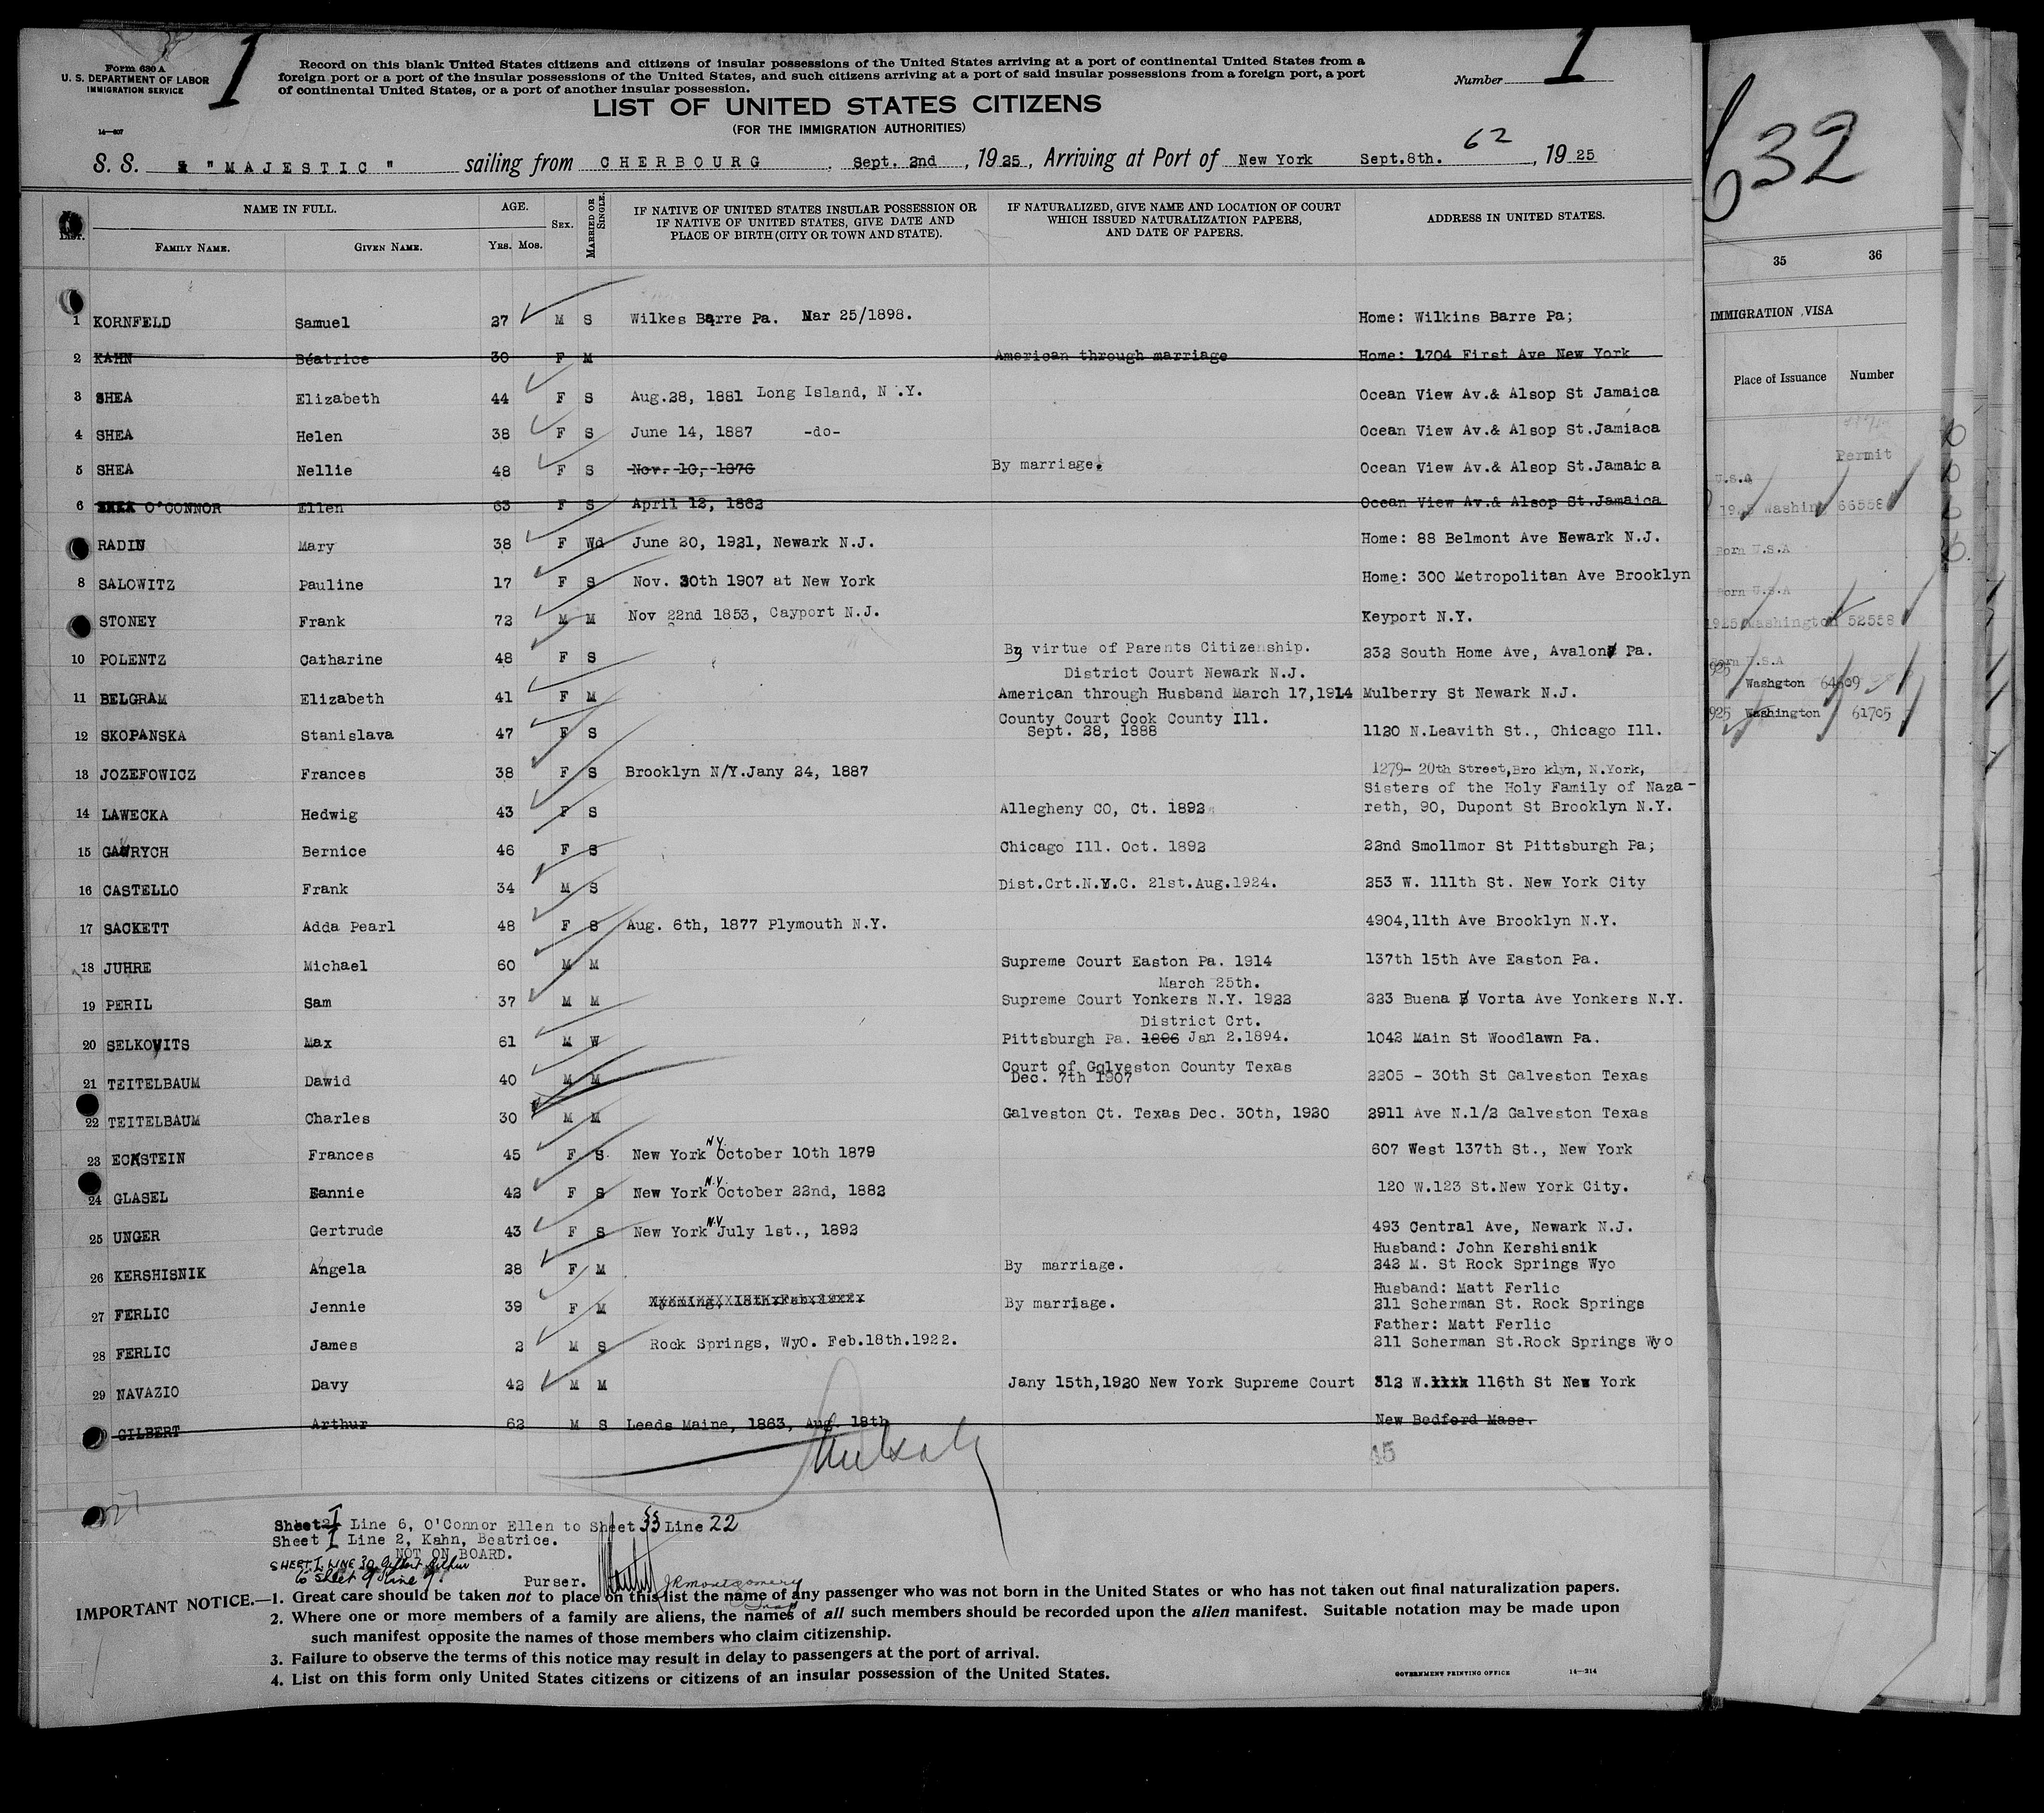 Form 630 A
U. S. DEPARTMENT OF LABOR
IMMIGRATION SERVICE
14—607
1
Record on this blank United States citizens and citizens of insular possessions of the United States arriving at a port of continental United States from a
foreign port or a port of the insular possessions of the United States, and such citizens arriving at a port of said insular possessions from a foreign port, a port
of continental United States, or a port of another insular possession.
Number 1
LIST OF UNITED STATES CITIZENS
(FOR THE IMMIGRATION AUTHORITIES)
62
S. S. "MAJESTIC" sailing from CHERBOURG, Sept. 2nd, 1925, Arriving at Port of New York Sept.8th., 1925
No. List. NAME IN FULL. AGE. SEX. MARRIED OR SINGLE. IF NATIVE OF UNITED STATES INSULAR POSSESSION OR IF NATIVE OF UNITED STATES, GIVE DATE AND PLACE OF BIRTH (CITY OR TOWN AND STATE). IF NATURALIZED, GIVE NAME AND LOCATION OF COURT WHICH ISSUED NATURALIZATION PAPERS, AND DATE OF PAPERS. ADDRESS IN UNITED STATES.
FAMILY NAME. GIVEN NAME. YRS. MOS.
1 KORNFELD Samuel 27 M S Wilkes Barre Pa. Mar 25/1898. Home: Wilkins Barre Pa;
2 KAHN Béatrice 30 F M American through marriage Home: 1704 First Ave New York
3 SHEA Elizabeth 44 F S Aug.28, 1881 Long Island, N.Y. Ocean View Av.& Alsop St Jamaica
4 SHEA Helen 38 F S June 14, 1887 -do- Ocean View Av.& Alsop St.Jamiaca
5 SHEA Nellie 48 F S Nov. 10, 1876 By marriage. Ocean View Av.& Alsop St.Jamaica
6 O'CONNOR Ellen 63 F S April 12, 1862 Ocean View Av.& Alsop St.Jamaica
RADIN Mary 38 F Wd June 20, 1921, Newark N.J. Home: 88 Belmont Ave Newark N.J.
8 SALOWITZ Pauline 17 F S Nov. 30th 1907 at New York Home: 300 Metropolitan Ave Brooklyn
STONEY Frank 72 M M Nov 22nd 1853, Cayport N.J. Keyport N.Y.
10 POLENTZ Catharine 48 F S By virtue of Parents Citizenship. 232 South Home Ave, Avalon Pa.
District Court Newark N.J.
11 BELGRAM Elizabeth 41 F M American through Husband March 17,1914 Mulberry St Newark N.J.
County Court Cook County Ill.
12 SKOPANSKA Stanislava 47 F S Sept. 28, 1888 1120 N.Leavith St., Chicago Ill.
13 JOZEFOWICZ Frances 38 F S Brooklyn N/Y.Jany 24, 1887 1279- 20th Street,Bro klyn, N.York,
Sisters of the Holy Family of Naza-
14 LAWECKA Hedwig 43 F S Allegheny CO, Ct. 1892 reth, 90, Dupont St Brooklyn N.Y.
15 GAWRYCH Bernice 46 F S Chicago Ill. Oct. 1892 22nd Smollmor St Pittsburgh Pa;
16 CASTELLO Frank 34 M S Dist.Crt.N.Y.C. 21st.Aug.1924. 253 W. 111th St. New York City
17 SACKETT Adda Pearl 48 F S Aug. 6th, 1877 Plymouth N.Y. 4904,11th Ave Brooklyn N.Y.
18 JUHRE Michael 60 M M Supreme Court Easton Pa. 1914 137th 15th Ave Easton Pa.
March 25th.
19 PERIL Sam 37 M M Supreme Court Yonkers N.Y. 1922 223 Buena Vorta Ave Yonkers N.Y.
District Crt.
20 SELKOVITS Max 61 M W Pittsburgh Pa. 1896 Jan 2.1894. 1042 Main St Woodlawn Pa.
Court of Galveston County Texas
21 TEITELBAUM Dawid 40 M M Dec. 7th 1907 2205 - 30th St Galveston Texas
22 TEITELBAUM Charles 30 M M Galveston Ct. Texas Dec. 30th, 1920 2911 Ave N.1/2 Galveston Texas
23 ECKSTEIN Frances 45 F S New York N.Y. October 10th 1879 607 West 137th St., New York
24 GLASEL Fannie 42 F S New York N.Y. October 22nd, 1882 120 W.123 St.New York City.
25 UNGER Gertrude 43 F S New York N.Y July 1st., 1892 493 Central Ave, Newark N.J.
Husband: John Kershisnik
26 KERSHISNIK Angela 28 F M By marriage. 242 M. St Rock Springs Wyo
Husband: Matt Ferlic
27 FERLIC Jennie 39 F M By marriage. 211 Scherman St. Rock Springs
Father: Matt Ferlic
28 FERLIC James 2 M S Rock Springs, WyO. Feb.18th.1922. 211 Scherman St.Rock Springs Wyo
29 NAVAZIO Davy 42 M M Jany 15th,1920 New York Supreme Court 312 W. 116th St New York
GILBERT Arthur 62 M S Leeds Maine, 1863, Aug. 18th New Bedford Mass.
Sheet I Line 6, O'Connor Ellen to Sheet 33 Line 22
Sheet I Line 2, Kahn, Beatrice.
NOT ON BOARD.
SHEET I, LINE 30 Gilbert Arthur
to Sheet 9 Line 9.
Purser. JRMontgomery
IMPORTANT NOTICE.—1. Great care should be taken not to place on this list the name of any passenger who was not born in the United States or who has not taken out final naturalization papers.
2. Where one or more members of a family are aliens, the names of all such members should be recorded upon the alien manifest. Suitable notation may be made upon
such manifest opposite the names of those members who claim citizenship.
3. Failure to observe the terms of this notice may result in delay to passengers at the port of arrival.
4. List on this form only United States citizens or citizens of an insular possession of the United States.
GOVERNMENT PRINTING OFFICE 14—214
632
35 36
IMMIGRATION VISA
Place of Issuance Number
Permit
U.S.A
1925 Washing 66558
Born U.S.A
Born U.S.A
1925 Washington 52558
Born U.S.A
925 Washgton 64509
925 Washington 61705